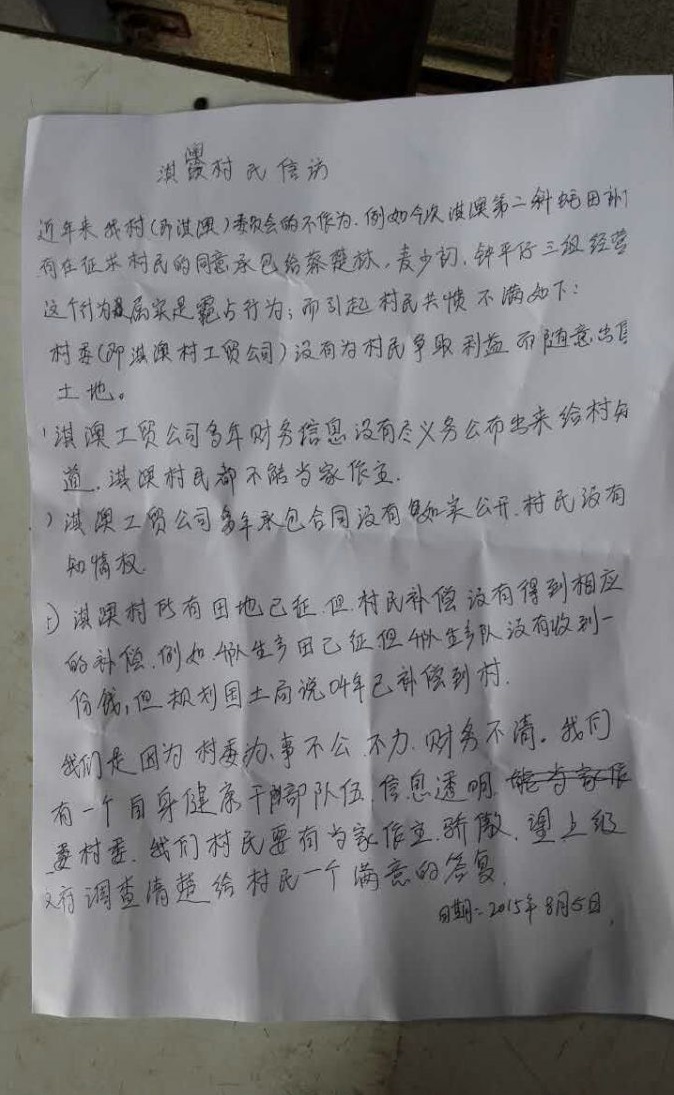 淇澳村民信访
近年来我村(即淇澳)委员会的不作为.例如今次淇澳第二斜蚝田
有在征求村民的同意承包给蔡楚林,麦少初,钟平仔三组经营
这个行为属实是霸占行为;而引起村民共愤不满如下:
村委(即淇澳村工贸公司)没有为村民争取利益而随意出售
土地。
淇澳工贸公司多年财务信息没有尽义务公布出来给村
道.淇澳村民都不能当家作主.
)淇澳工贸公司多年承包合同没有如实公开.村民没有
知情权.
)淇澳村所有田地已征.但村民补偿没有得到相应
的补偿.例如.4队生产田已征但4队生产队没有收到一
份钱,但规划国土局说04年已补偿到村.
我们是因为村委办事不公.不力.财务不清。我们
有一个自身健康干部队伍.信息透明.能当家作
委村委.我们村民要有当家作主.骄傲.望上级
政府调查清楚给村民一个满意的答复.
日期:2015年8月5日.